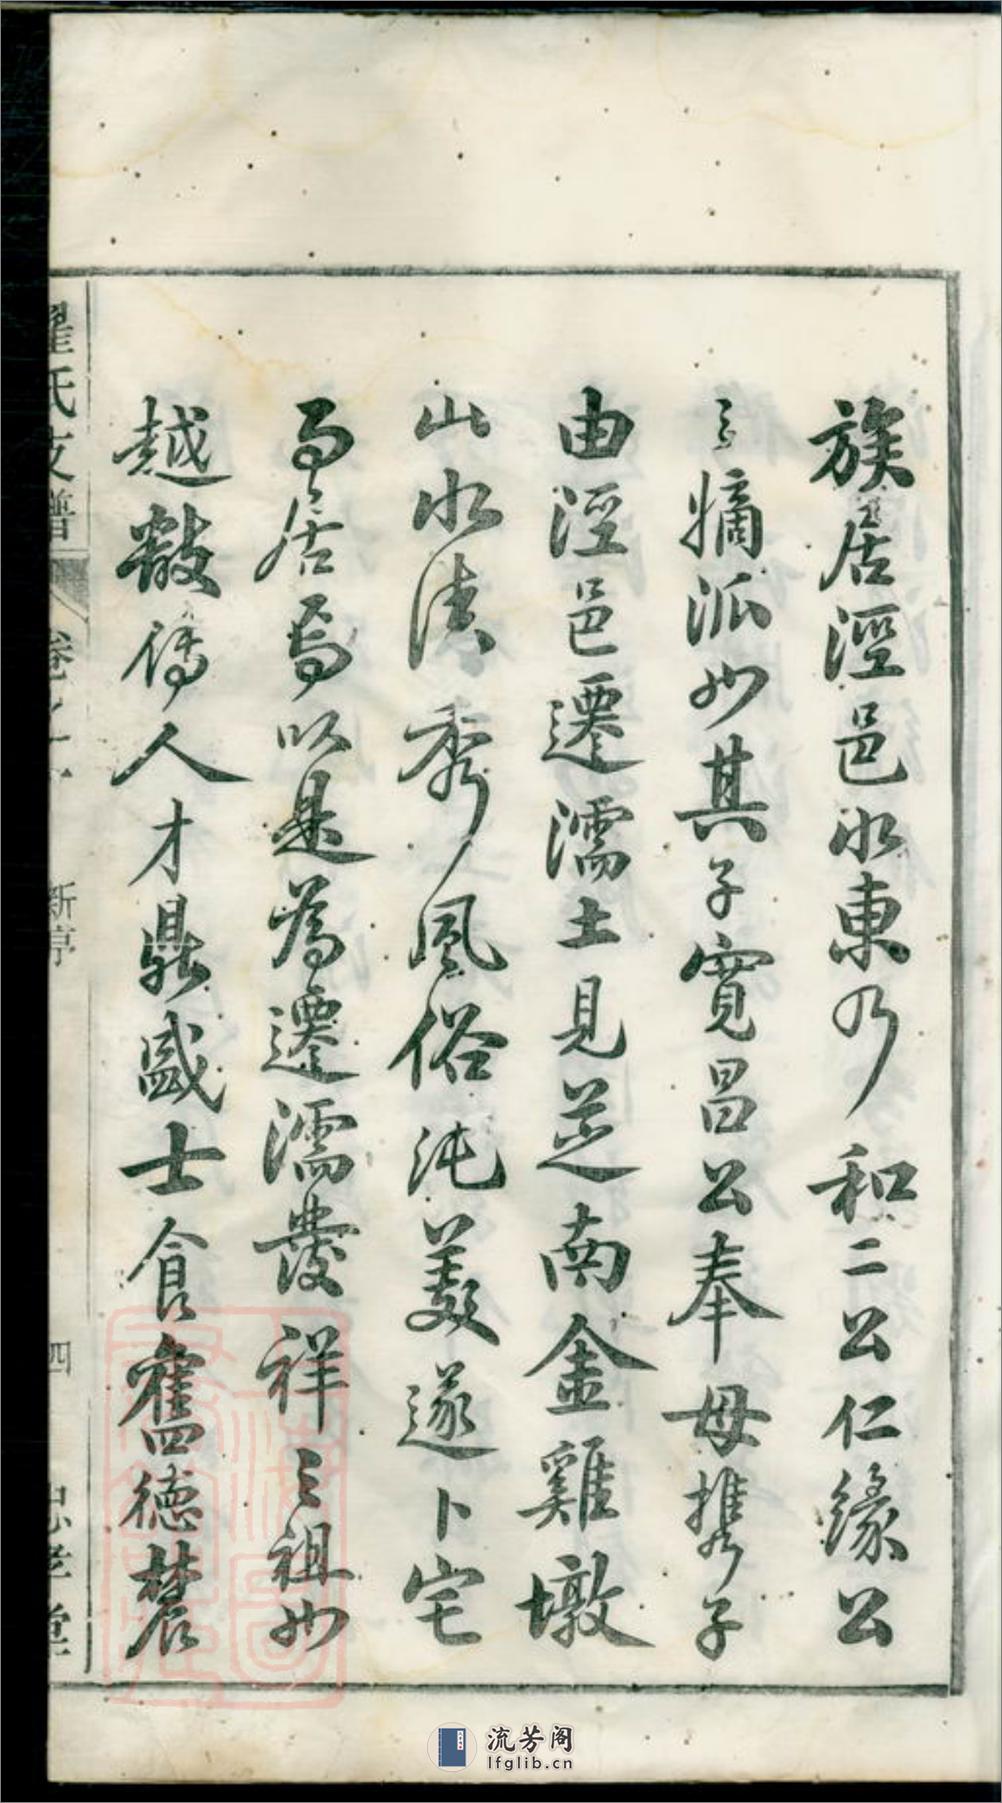 族居涇邑水東乃和二公仁緣公
之嫡派也其子寬昌公奉母携子
由涇邑遷濡土見芝南金雞墩
山水清秀風俗純美遂卜宅
而居焉以是為遷濡發祥之祖也
越數傳人才鼎盛士食舊德農
翟氏支譜
卷之一
新序
四
忠孝堂
流芳阁
lfglib.cn